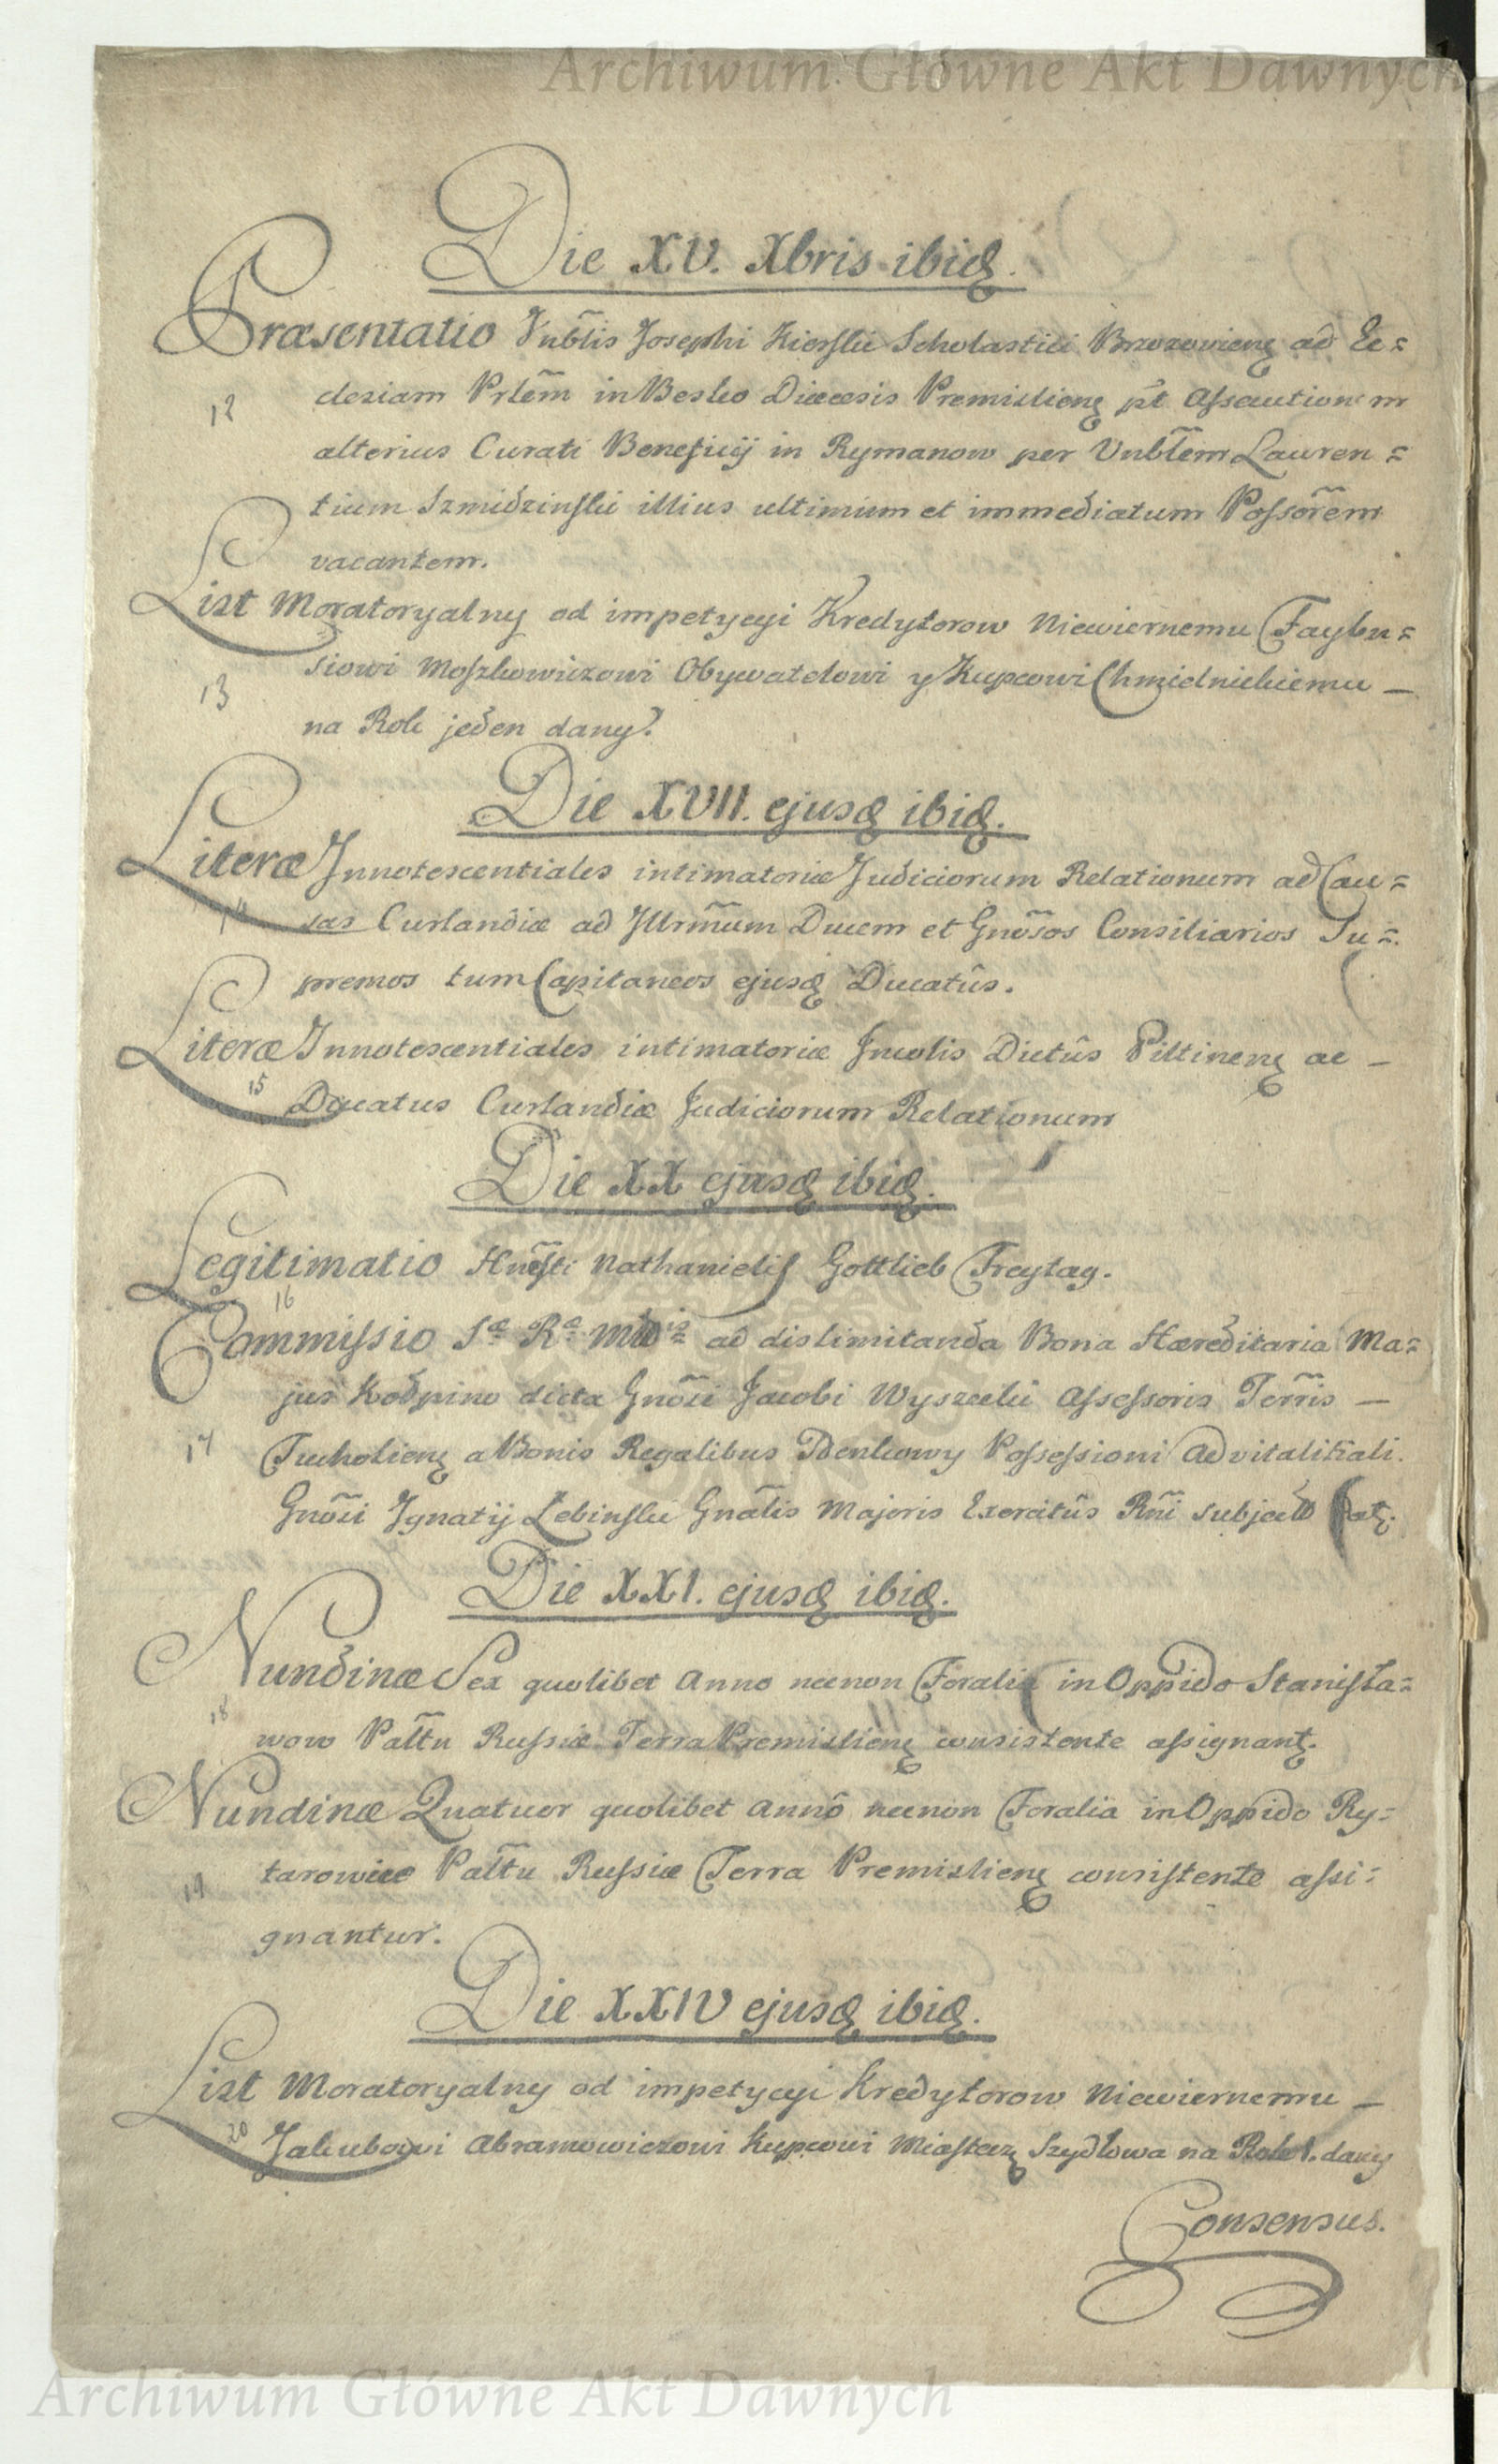 Archiwum Główne Akt Dawnych
Die XV. Xbris ibid.
Præsentatio Vnbl̃is Josephi Kierski Scholastici Brzozoviens ad Ec=
12
clesiam Prlẽm in Besko Diæcesis Premisliens pt Assecutionem
alterius Curati Beneficij in Rymanow per Vnblẽm Lauren=
tium Szmidzinski illius ultimum et immediatum Possorẽm
vacantem.
List Moratoryalny od impetycyi Kredytorow Niewiernemu Faybu=
siowi Moszkowiczowi Obywatelowi y Kupcowi Chmielnickiemu —
13
na Rok jeden dany.
Die XVII. ejusd ibid.
Literæ Innotescentiales intimatoriæ Judiciorum Relationum ad Cau=
14
sas Curlandiæ ad Illrm̃um Ducem et Gnõsos Consiliarios Su=
premos tum Capitaneos ejusd Ducatûs.
Literæ Innotescentiales intimatoriæ Incolis Dictûs Piltinens ac —
15
Ducatus Curlandiæ Judiciorum Relationum
Die XX ejusd ibid.
Legitimatio Hnẽsti Nathanielis Gottlieb Freytag.
16
Commissio Sæ Ræ Mttis ad dislimitanda Bona Hæreditaria Ma=
jus Kodpino dicta Gnõsi Jacobi Wyszecki Assessoris Terr̃is —
17
Tucholiens a Bonis Regalibus Zdenkowy Possessioni Advitalitiali
Gnõsi Ignatij Lebinski Gnãlis Majoris Exercitûs Rñi subject
Die XXI. ejusd ibid.
Nundinæ Sex quolibet Anno necnon Foralia in Oppido Stanisla=
18
wow Palt̃u Russiæ Terra Premisliens consistente assignant.
Nundinæ Quatuor quolibet annô necnon Foralia in Oppido Ry=
tarowice Palt̃u Russiæ Terra Premisliens consistente assi=
19
gnantur.
Die XXIV ejusd ibid.
List Moratoryalny od impetycyi Kredytorow Niewiernemu —
20
Jakubowi Abramowiczowi Kupcowi Miastecz Szydłowa na Rok 1. dany
Consensus.
Archiwum Główne Akt Dawnych